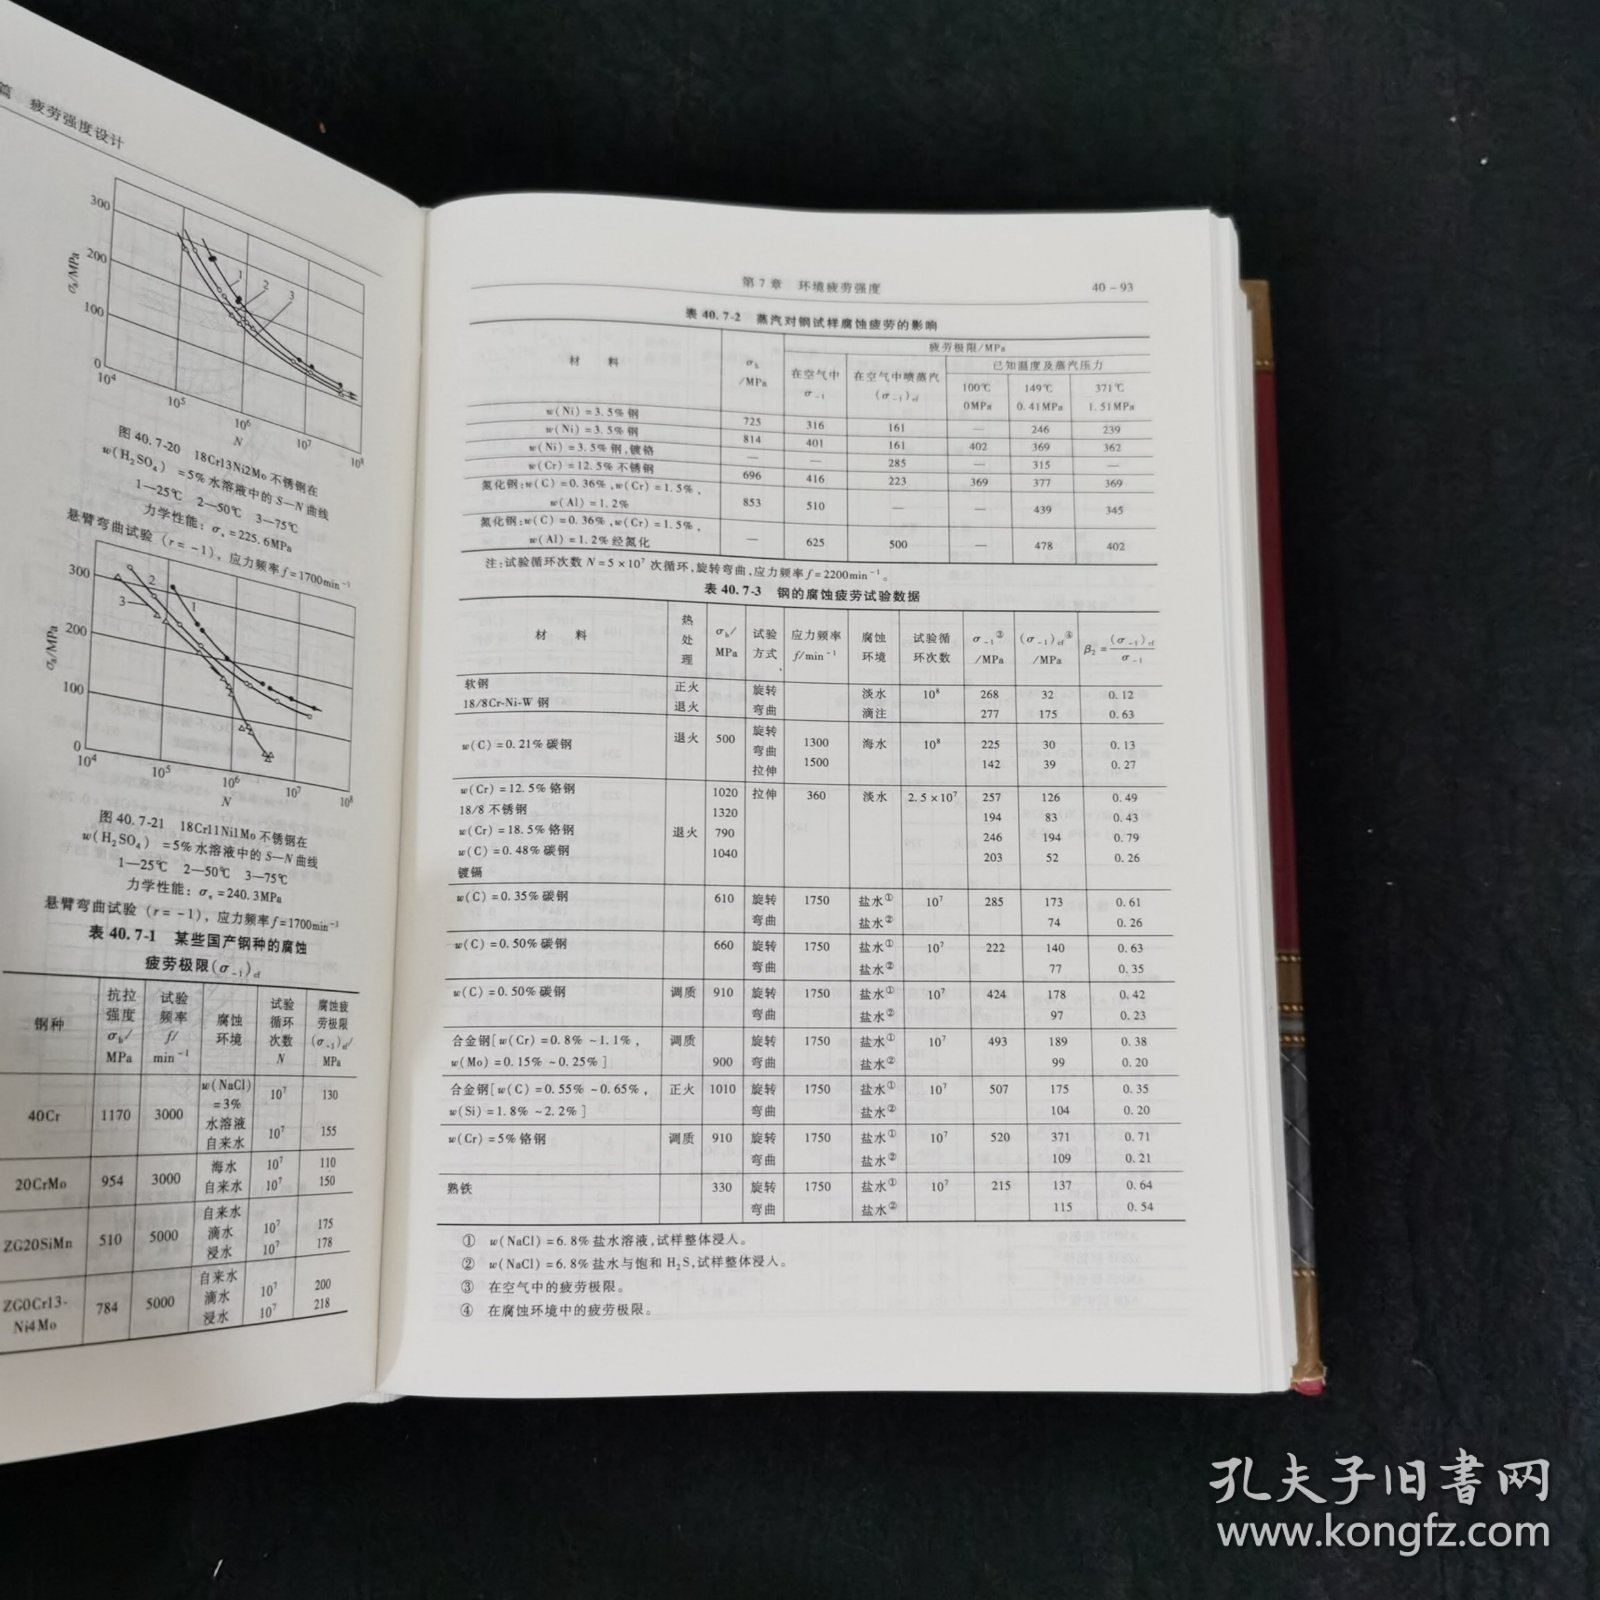 篇 疲劳强度设计
300
200
100
0
σₐ/MPa
1
2
3
10⁴
10⁵
10⁶
10⁷
10⁸
N
图 40.7-20 18Cr13Ni2Mo 不锈钢在
w(H₂SO₄) =5%水溶液中的 S—N 曲线
1—25℃ 2—50℃ 3—75℃
力学性能：σₛ=225.6MPa
悬臂弯曲试验（r=-1），应力频率f=1700min⁻¹
300
200
100
0
σₐ/MPa
2
3
1
10⁴
10⁵
10⁶
10⁷
10⁸
N
图 40.7-21 18Cr11Ni1Mo 不锈钢在
w(H₂SO₄) =5%水溶液中的 S—N 曲线
1—25℃ 2—50℃ 3—75℃
力学性能：σₛ=240.3MPa
悬臂弯曲试验（r=-1），应力频率f=1700min⁻¹
表 40.7-1 某些国产钢种的腐蚀
疲劳极限(σ₋₁)cf
钢种 抗拉强度σb/MPa 试验频率f/min⁻¹ 腐蚀环境 试验循环次数N 腐蚀疲劳极限(σ₋₁)cf/MPa
40Cr 1170 3000 w(NaCl)=3%水溶液 10⁷ 130
自来水 10⁷ 155
20CrMo 954 3000 海水 10⁷ 110
自来水 10⁷ 150
ZG20SiMn 510 5000 自来水
滴水 10⁷ 175
浸水 10⁷ 178
ZG0Cr13-Ni4Mo 784 5000 自来水
滴水 10⁷ 200
浸水 10⁷ 218
第7章 环境疲劳强度 40-93
表 40.7-2 蒸汽对钢试样腐蚀疲劳的影响
材 料 σb/MPa 疲劳极限/MPa
在空气中σ₋₁ 在空气中喷蒸汽(σ₋₁)cf 已知温度及蒸汽压力
100℃ 0MPa 149℃ 0.41MPa 371℃ 1.51MPa
w(Ni)=3.5%钢 725 316 161 — 246 239
w(Ni)=3.5%钢 814 401 161 402 369 362
w(Ni)=3.5%钢,镀铬 — — 285 — 315 —
w(Cr)=12.5%不锈钢 696 416 223 369 377 369
氮化钢:w(C)=0.36%,w(Cr)=1.5%,
w(Al)=1.2% 853 510 — — 439 345
氮化钢:w(C)=0.36%,w(Cr)=1.5%,
w(Al)=1.2%经氮化 — 625 500 — 478 402
注:试验循环次数N=5×10⁷次循环,旋转弯曲,应力频率f=2200min⁻¹。
表 40.7-3 钢的腐蚀疲劳试验数据
材 料 热处理 σb/MPa 试验方式 应力频率f/min⁻¹ 腐蚀环境 试验循环次数 σ₋₁③/MPa (σ₋₁)cf④/MPa β₂=(σ₋₁)cf/σ₋₁
软钢 正火 旋转 淡水 10⁸ 268 32 0.12
18/8Cr-Ni-W钢 退火 弯曲 滴注 277 175 0.63
w(C)=0.21%碳钢 退火 500 旋转
弯曲 1300 海水 10⁸ 225 30 0.13
拉伸 1500 142 39 0.27
w(Cr)=12.5%铬钢 1020 拉伸 360 淡水 2.5×10⁷ 257 126 0.49
18/8不锈钢 1320 194 83 0.43
w(Cr)=18.5%铬钢 退火 790 246 194 0.79
w(C)=0.48%碳钢 1040 203 52 0.26
镀镉
w(C)=0.35%碳钢 610 旋转 1750 盐水① 10⁷ 285 173 0.61
弯曲 盐水② 74 0.26
w(C)=0.50%碳钢 660 旋转 1750 盐水① 10⁷ 222 140 0.63
弯曲 盐水② 77 0.35
w(C)=0.50%碳钢 调质 910 旋转 1750 盐水① 10⁷ 424 178 0.42
弯曲 盐水② 97 0.23
合金钢[w(Cr)=0.8%~1.1%, 调质 旋转 1750 盐水① 10⁷ 493 189 0.38
w(Mo)=0.15%~0.25%] 900 弯曲 盐水② 99 0.20
合金钢[w(C)=0.55%~0.65%, 正火 1010 旋转 1750 盐水① 10⁷ 507 175 0.35
w(Si)=1.8%~2.2%] 弯曲 盐水② 104 0.20
w(Cr)=5%铬钢 调质 910 旋转 1750 盐水① 10⁷ 520 371 0.71
弯曲 盐水② 109 0.21
熟铁 330 旋转 1750 盐水① 10⁷ 215 137 0.64
弯曲 盐水② 115 0.54
① w(NaCl)=6.8%盐水溶液,试样整体浸入。
② w(NaCl)=6.8%盐水与饱和H₂S,试样整体浸入。
③ 在空气中的疲劳极限。
④ 在腐蚀环境中的疲劳极限。
孔夫子旧书网
www.kongfz.com